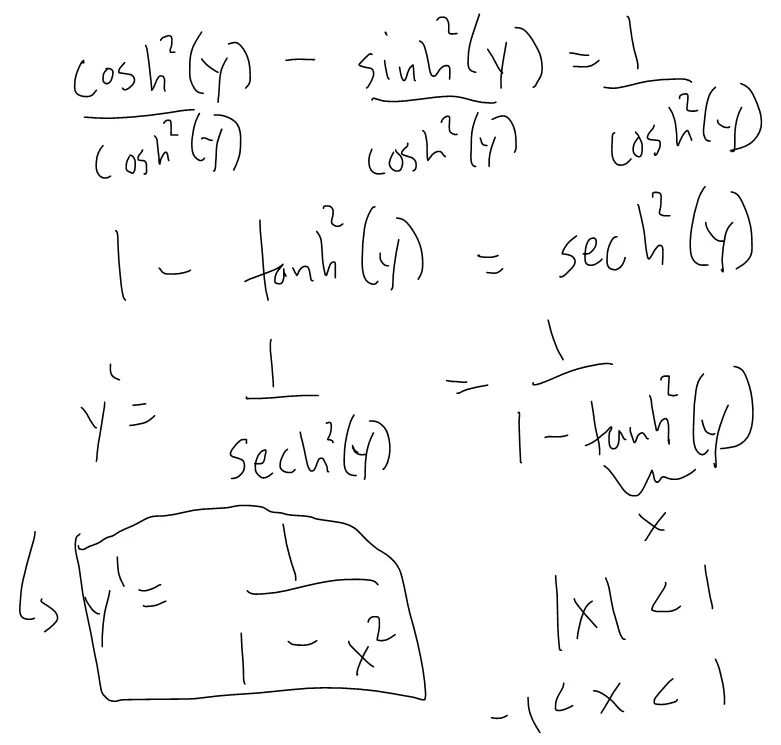 cosh²(y)/cosh²(y) - sinh²(y)/cosh²(y) = 1/cosh²(y)
1 - tanh²(y) = sech²(y)
y' = 1/sech²(y) = 1/(1 - tanh²(y))
x
↳ y' = 1/(1 - x²)
|x| < 1
-1 < x < 1